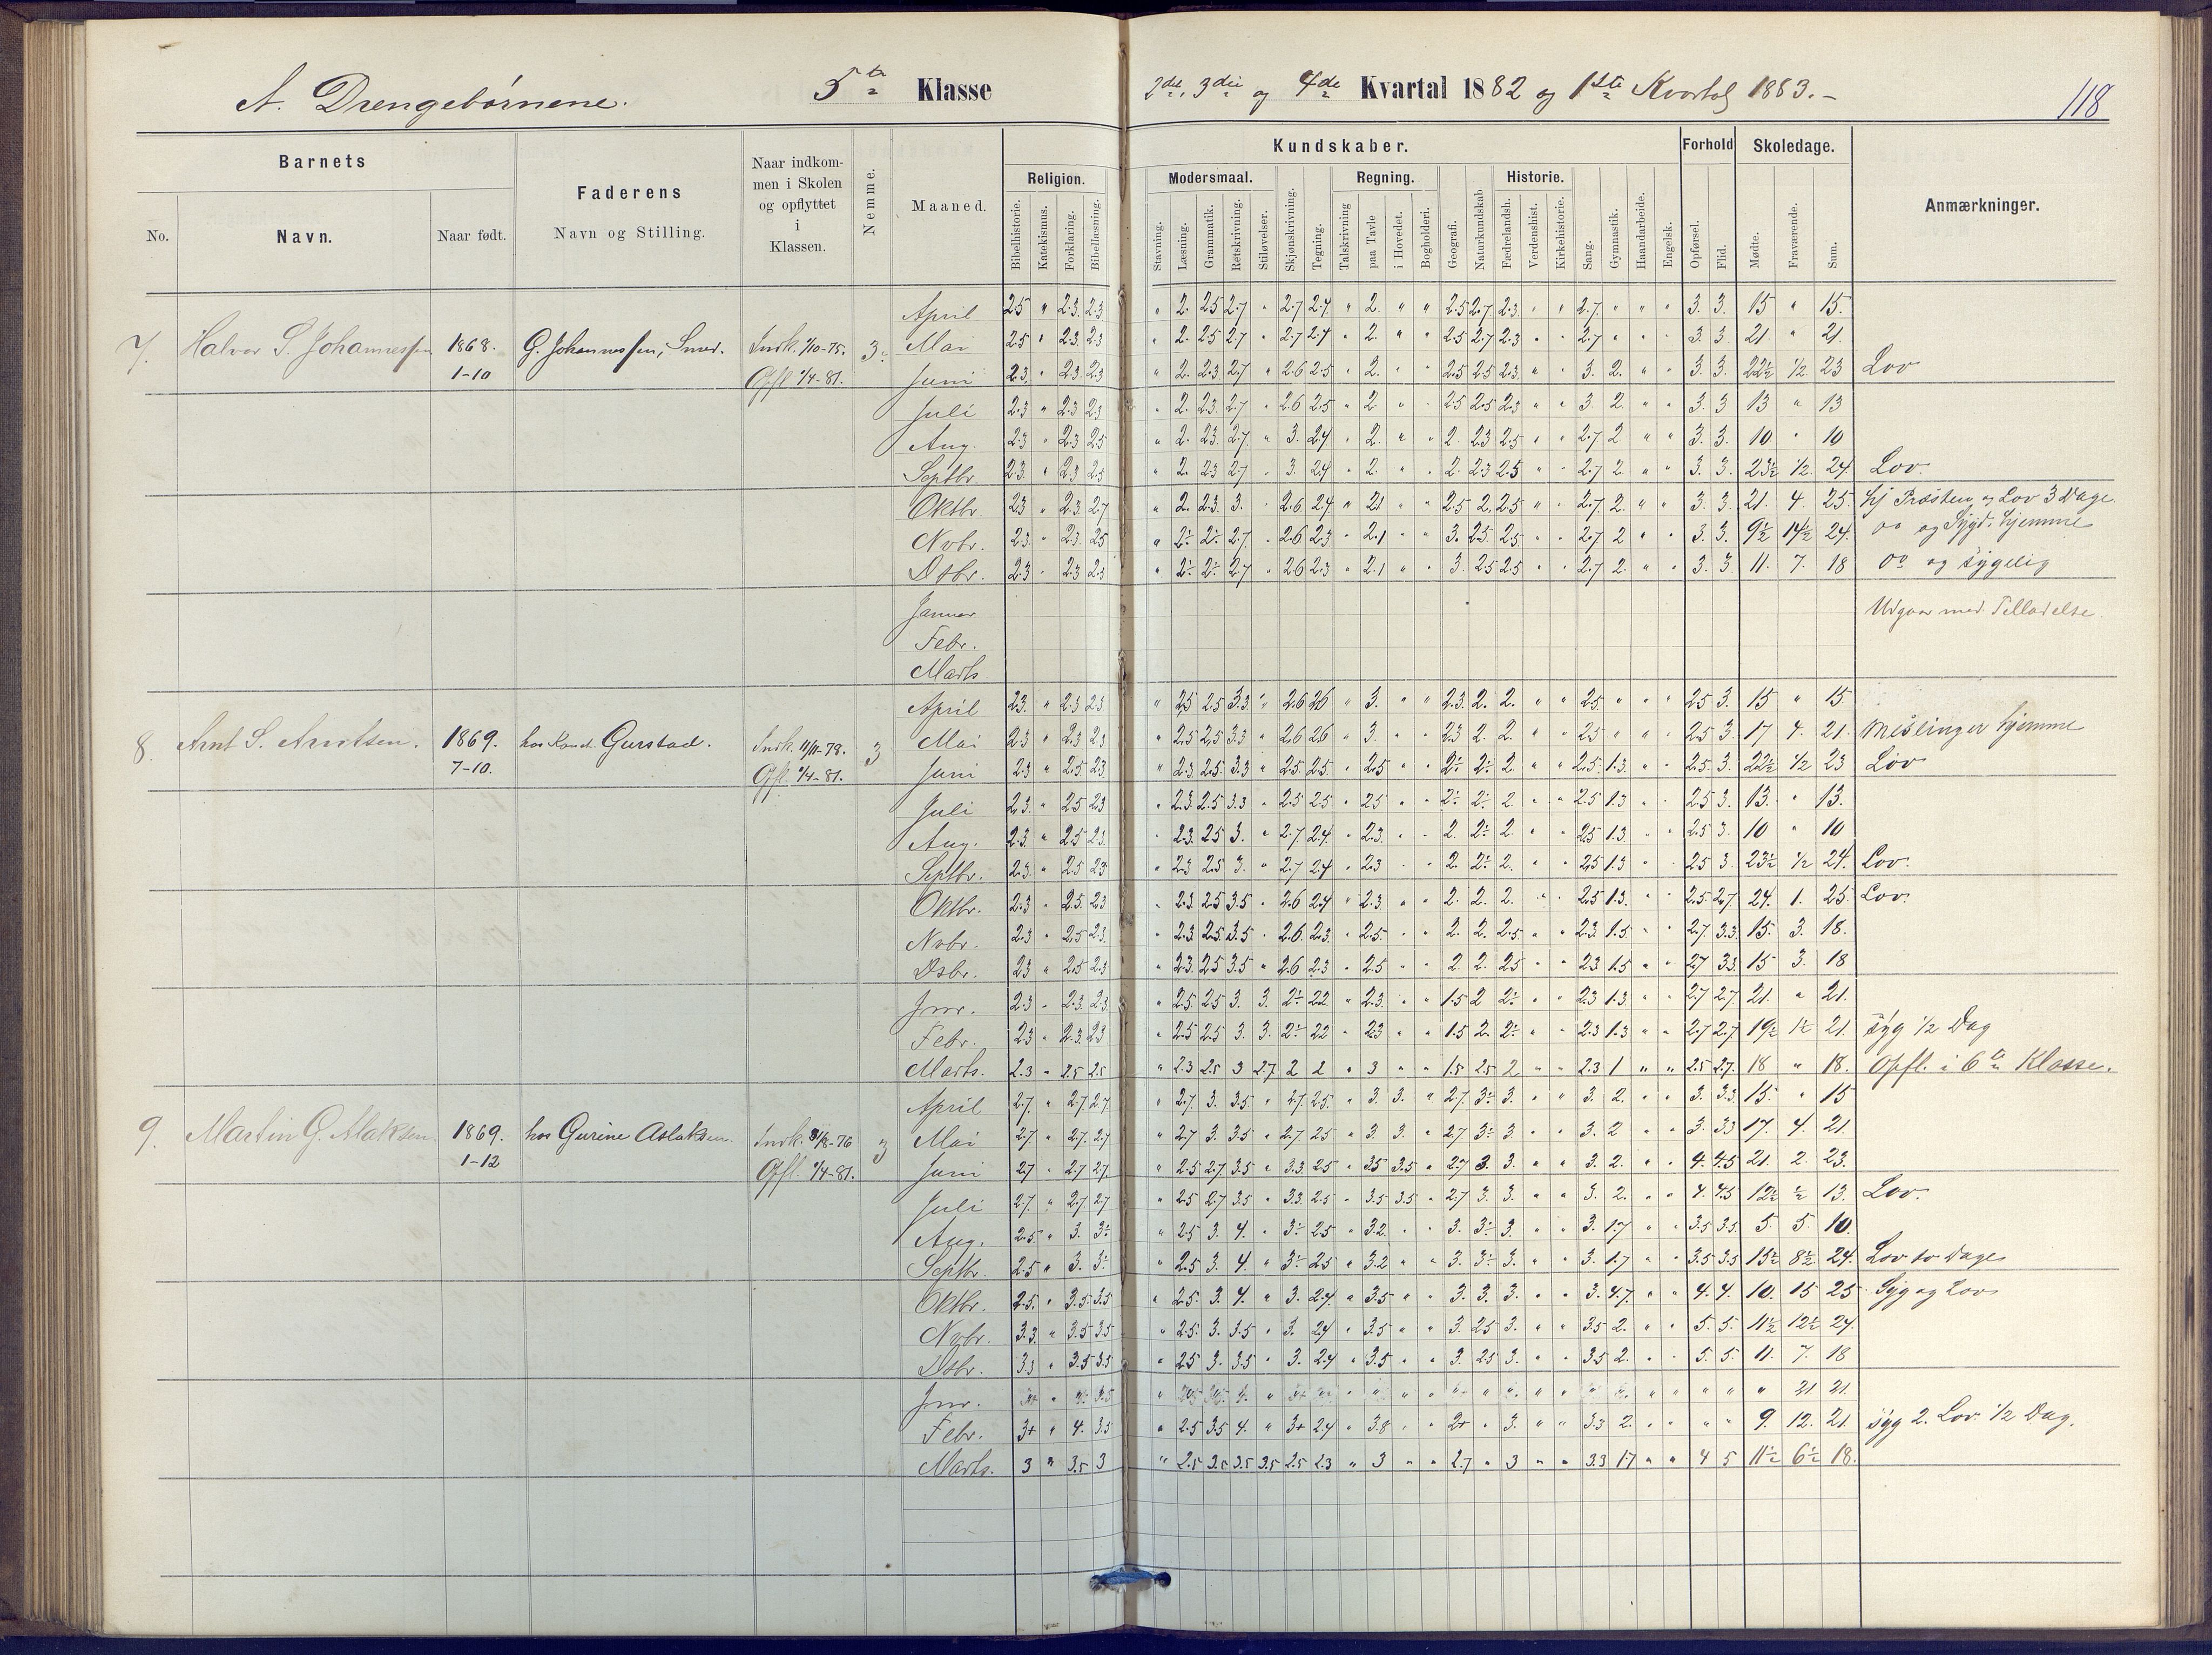 A. Drengebørnene. 5te Klasse 2det, 3die og 4de Kvartal 1882 og 1ste Kvartal 1883.-
118
Barnets
No. Navn. Naar født.
Faderens
Navn og Stilling.
Naar indkommen i Skolen og opflyttet i Klassen.
Nemme.
Maaned.
Kundskaber.
Religion.
Bibelhistorie. Katekismus. Forklaring. Bibellæsning.
Modersmaal.
Stavning. Læsning. Grammatik. Retskrivning. Stiløvelser.
Skjønskrivning. Tegning.
Regning.
Talskrivning paa Tavle i Hovedet. Bogholderi.
Geografi. Naturkundskab
Historie.
Fædrelandsh. Verdenshist. Kirkehistorie.
Sang. Gymnastik. Haandarbeide. Engelsk.
Forhold
Opførsel. Flid.
Skoledage.
Mødte. Fraværende. Sum.
Anmærkninger.
7. Halvor S. Johannessen 1868. 1-10 G. Johannessen, Smed. Indk. 1/10-75. Opfl. 1/4-81. 3
April 2.5 " 2.3 2.3 " 2. 2.5 2.7 " 2.7 2.4 " 2. " " 2.5 2.7 2.3 " " 2.7 " " " 3. 3. 15 " 15.
Mai 2.5 " 2.3 2.3 " 2. 2.5 2.7 " 2.7 2.4 " 2. " " 2.5 2.7 2.3 " " 2.7 " " " 3. 3. 21. " 21.
Juni 2.3 " 2.3 2.3 " 2. 2.3 2.7 " 2.6 2.5 " 2. " " 2.5 2.5 2.3 " " 3. 2. " " 3. 3. 22½ ½ 23 Lov
Juli 2.3 " 2.3 2.3 " 2. 2.3 2.7 " 2.6 2.5 " 2 " " 2.5 2.5 2.3 " " 3. 2. " " 3. 3 13 " 13
Aug. 2.3 " 2.3 2.5 " 2. 2.3 2.7 " 3. 2.4 " 2. " " 2. 2.3 2.5 " " 2.7 2 " " 3. 3. 10 " 10
Septbr. 2.3 " 2.3 2.5 " 2. 2.3 2.7 " 3. 2.4 " 2. " " 2. 2.3 2.5 " " 2.7 2. " " 3. 3. 23½ ½ 24 Lov.
Oktbr. 2.3 " 2.3 2.7 " 2. 2.3 3. " 2.6 2.4 " 2.1 " " 2.5 2. 2.5 " " 2.7 2. " " 3. 3. 21. 4 25. hj Præsten og Lov 3 Dage
Nvbr. 2.3 " 2.3 2.5 " 2÷ 2÷ 2.7 " 2.6 2.3 " 2.1 " " 3. 2.5 2.5 " " 2.7 2 " " 3. 3. 9½ 14½ 24. Do og Sygd. hjemme
Dsbr. 2.3 " 2.3 2.3 " 2÷ 2÷ 2.7 " 2.6 2.3 " 2.1 " " 3. 2.5 2.5 " " 2.7 2. " " 3. 3. 11. 7. 18 Do og sygelig
Januar Udgaar med Tilladelse.
Febr.
Marts
8. Arnt S. Arntsen. 1869. 7-10. Gurstad. Indk. 11/11-78. Opfl. 1/4-81. 3
April 2.3 " 2.3 2.3 " 2.5 2.5 3.3 " 2.6 2.6 " 3. " " 2.3 2. 2. " " 2.5 " " " 2.5 3. 15 " 15.
Mai 2.3 " 2.3 2.3 " 2.5 2.5 3.3 " 2.6 2.6 " 3. " " 2.3 2. 2. " " 2.5 " " " 2.5 3. 17 4. 21. Meslinger hjemme
Juni 2.3 " 2.5 2.3 " 2.3 2.5 3.3 " 2.5 2.5 " 2.5 " " 2÷ 2÷ 2. " " 2.5 1.3 " " 2.5 3. 22½ ½ 23 Lov
Juli 2.3 " 2.5 2.3 " 2.3 2.5 3.3 " 2.5 2.5 " 2.5 " " 2÷ 2÷ 2. " " 2.5 1.3 " " 2.5 3. 13. " 13.
Aug. 2.3 " 2.5 2.3 " 2.3 2.5 3. " 2.7 2.4 " 2.3 " " 2. 2÷ 2. " " 2.5 1.3 " " 2.5 3. 10 " 10
Septbr. 2.3 " 2.5 2.3 " 2.3 2.5 3. " 2.7 2.4 " 2.3 " " 2. 2÷ 2. " " 2.5 1.3 " " 2.5 3 23½ ½ 24. Lov.
Oktbr. 2.3 " 2.5 2.3 " 2.3 2.5 3.5 " 2.6 2.4 " 2.3 " " 2. 2. 2. " " 2.5 1.3 " " 2.5 2.7 24. 1. 25. Lov.
Nvbr. 2.3 " 2.5 2.3 " 2.3 2.5 3.5 " 2.6 2.3 " 2.5 " " 2. 2. 2.5 " " 2.3 1.5 " " 2.7 3.3 15. 3. 18.
Dsbr. 2.3 " 2.5 2.3 " 2.3 2.5 3.5 " 2.6 2.3 " 2.5 " " 2. 2. 2.5 " " 2.3 1.5 " " 2.7 3.3 15 3. 18
Jnr. 2.3 " 2.3 2.3 " 2.5 2.5 3. 3. 2÷ 2.2 " 2.3 " " 1.5 2 2÷ " " 2.3 1.3 " " 2.7 2.7 21. " 21.
Febr. 2.3 " 2.3 2.3 " 2.5 2.5 3 3. 2÷ 2.2 " 2.3 " " 1.5 2. 2÷ " " 2.3 1.3 " " 2.7 2.7 19½ 1½ 21. syg ½ Dag
Marts. 2.3 " 2.5 2.5 " 2.3 2.5 3 2.7 2 2 " 3 " " 1.5 2.5 2 " " 2.3 1 " " 2.5 2.7 18 " 18. Opfl. i 6te Klasse.
9. Martin G. Alaksen. 1869. 1-12 hos Gurine Aslaksen. Indk. 31/8-76 Opfl. 1/4-81. 3
April 2.7 " 2.7 2.7 " 2.7 3. 3.5 " 2.7 2.5 " 3. 3. " 2.7 3÷ 3. " " 3. 2. " " 3. 3.3 15. " 15
Mai 2.7 " 2.7 2.7 " 2.7 3. 3.5 " 2.7 2.5 " 3. 3. " 2.7 3÷ 3. " " 3. 2 " " 3. 3.3 17. 4. 21.
Juni 2.7 " 2.7 2.7 " 2.5 2.7 3.5 " 3.3 2.5 " 3.5 3.5 " 2.7 3. 3. " " 3. 2. " " 4. 4.5 21. 2. 23.
Juli 2.7 " 2.7 2.7 " 2.5 2.7 3.5 " 3.3 2.5 " 3.5 3.5 " 2.7 3. 3. " " 3. 2. " " 4. 4.5 12½ ½ 13. Lov.
Aug. 2.5 " 3. 3÷ " 2.5 3. 4. " 3÷ 2.5 " 3.2 " " 3. 3÷ 3. " " 3. 1.7 " " 3.5 3.5 5. 5. 10.
Septbr. 2.5 " 3. 3÷ " 2.5 3. 4. " 3÷ 2.5 " 3.2 " " 3. 3÷ 3. " " 3. 1.7 " " 3.5 3.5 15½ 8½ 24. Lov to Dage
Oktbr. 2.5 " 3.5 3.5 " 2.5 3. 4. " 3. 2.4 " 3.5 " " 3. 3. 3. " " 3. 4.7 " " 4. 4. 10. 15 25 Syg og Lov
Nvbr. 3.3 " 3.5 3.5 " 2.5 3. 3.5 " 3. 2.4 " 3.5 " " 3. 2.5 3. " " 3.5 2. " " 5. 5. 11½ 12½ 24.
Dsbr. 3.3 " 3.5 3.5 " 2.5 3. 3.5 " 3. 2.4 " 3.5 " " 3. 2.5 3. " " 3.5 2. " " 5. 5. 11. 7. 18
Jnr. " 21 21.
Febr. 3+ " 4. 3.5 " 2.5 3.5 4. " 3+ 2.4 " 3.8 " " 2+ " 3. " " 3.3 2. " " " " 9. 12. 21 syg 2. Lov ½ Dag.
Marts. 3 " 3.5 3 " 2.5 3.5 3.5 3.5 2.5 2.3 " 3 " " 2.7 " 3 " " 3.3 1.7 " " 4 5 11½ 6½ 18.